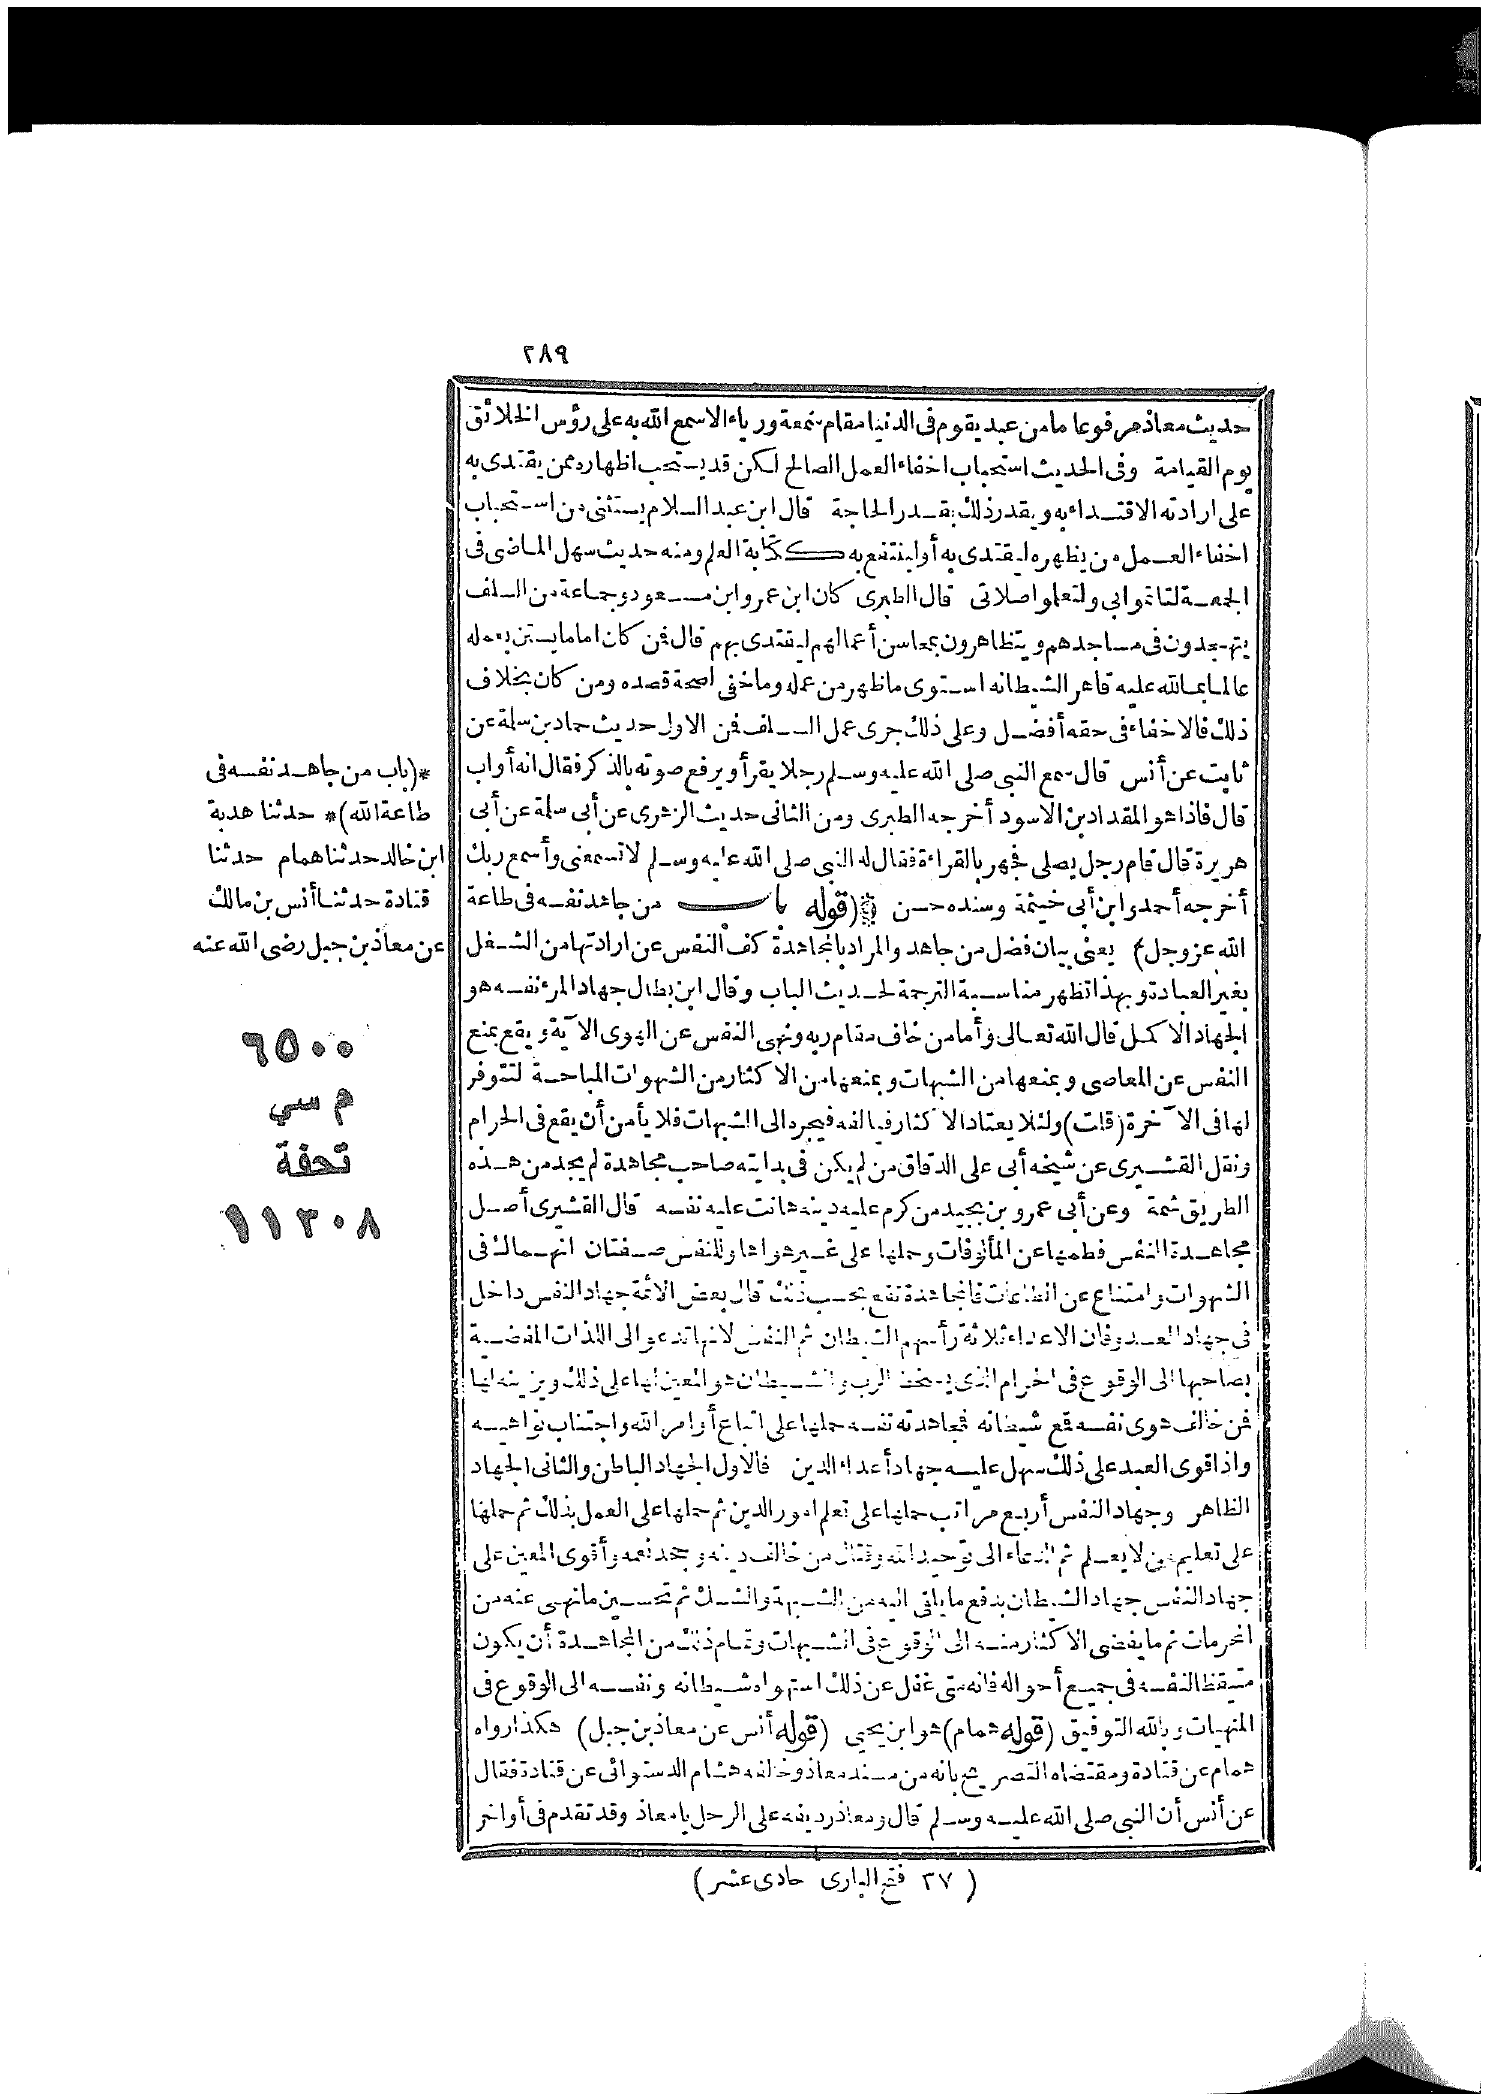 ٢٨٩
حديث معاذ مرفوعا ما من عبد يقوم فى الدنيا مقام سمعة ورياء الا سمع الله به على رؤس الخلائق
يوم القيامة وفى الحديث استحباب اخفاء العمل الصالح لكن قد يستحب اظهاره ممن يقتدى به
على ارادته الاقتداء به ويقدر ذلك بقدر الحاجة قال ابن عبد السلام يستثنى من استحباب
اخفاء العمل من يظهره ليقتدى به أو لينتفع به ككتابة العلم ومنه حديث سهل الماضى فى
الجمعة لتأتموا بى ولتعلموا صلاتى قال الطبرى كان ابن عمر وابن مسعود وجماعة من السلف
يتهجدون فى مساجدهم ويتظاهرون بمحاسن أعمالهم ليقتدى بهم قال فمن كان اماما يستن بعمله
عالما بما لله عليه قاهر الشيطانه استوى ما ظهر من عمله وما خفى لصحة قصده ومن كان بخلاف
ذلك فالاخفاء فى حقه أفضل وعلى ذلك جرى عمل السلف فمن الاول حديث حماد بن سلمة عن
ثابت عن أنس قال سمع النبى صلى الله عليه وسلم رجلا يقرأ ويرفع صوته بالذكر فقال انه أواب
قال فاذا هو المقداد بن الاسود أخرجه الطبرى ومن الثانى حديث الزهرى عن أبى سلمة عن أبى
هريرة قال قام رجل يصلى فجهر بالقراءة فقال له النبى صلى الله عليه وسلم لا تسمعنى وأسمع ربك
أخرجه أحمد وابن أبى خيثمة وسنده حسن ﴿(قوله باب من جاهد نفسه فى طاعة
الله عز وجل) يعنى بيان فضل من جاهد والمراد بالمجاهدة كف النفس عن ارادتها من الشغل
بغير العبادة وبهذا تظهر مناسبة الترجمة لحديث الباب وقال ابن بطال جهاد المرء نفسه هو
الجهاد الاكمل قال الله تعالى وأما من خاف مقام ربه ونهى النفس عن الهوى الآية ويقع بمنع
النفس عن المعاصى وبمنعها من الشبهات وبمنعها من الاكثار من الشهوات المباحة لتتوفر
لها فى الآخرة (قلت) ولئلا يعتاد الاكثار فيألفه فيجره الى الشبهات فلا يأمن أن يقع فى الحرام
ونقل القشيرى عن شيخه أبى على الدقاق من لم يكن فى بدايته صاحب مجاهدة لم يجد من هذه
الطريق شمة وعن أبى عمرو بن بجيد من كرم عليه دينه هانت عليه نفسه قال القشيرى أصل
مجاهدة النفس فطمها عن المألوفات وحملها على غير هواها وللنفس صفتان انهماك فى
الشهوات وامتناع عن الطاعات فالمجاهدة تقع بحسب ذلك قال بعض الائمة جهاد النفس داخل
فى جهاد العدو فان الاعداء ثلاثة رأسهم الشيطان ثم النفس لانها تدعو الى اللذات المفضية
بصاحبها الى الوقوع فى الحرام الذى يسخط الرب والشيطان هو المعين لها على ذلك ويزينه لها
فمن خالف هوى نفسه قمع شيطانه فمجاهدته نفسه حملها على اتباع أوامر الله واجتناب نواهيه
واذا قوى العبد على ذلك سهل عليه جهاد أعداء الدين فالاول الجهاد الباطن والثانى الجهاد
الظاهر وجهاد النفس أربع مراتب حملها على تعلم امور الدين ثم حملها على العمل بذلك ثم حملها
على تعليم من لا يعلم ثم الدعاء الى توحيد الله وقتال من خالف دينه وجحد نعمه وأقوى المعين على
جهاد النفس جهاد الشيطان بدفع ما يلقى اليه من الشبهة والشك ثم تحسين ما نهى عنه من
المحرمات ثم ما يفضى الاكثار منه الى الوقوع فى الشبهات وتمام ذلك من المجاهدة أن يكون
متيقظا لنفسه فى جميع أحواله فانه متى غفل عن ذلك استهواه شيطانه ونفسه الى الوقوع فى
المنهيات وبالله التوفيق (قوله همام) هو ابن يحيى (قوله أنس عن معاذ بن جبل) هكذا رواه
همام عن قتادة ومقتضاه التصريح بانه من مسند معاذ وخالفه هشام الدستوائى عن قتادة فقال
عن أنس أن النبى صلى الله عليه وسلم قال ومعاذ رديفه على الرحل يا معاذ وقد تقدم فى أواخر
*(باب من جاهد نفسه فى
طاعة الله)* حدثنا هدبة
ابن خالد حدثنا همام حدثنا
قتادة حدثنا أنس بن مالك
عن معاذ بن جبل رضى الله عنه
٦٥٠٠
م سي
تحفة
١١٣٠٨
(٣٧ فتح البارى حادى عشر)